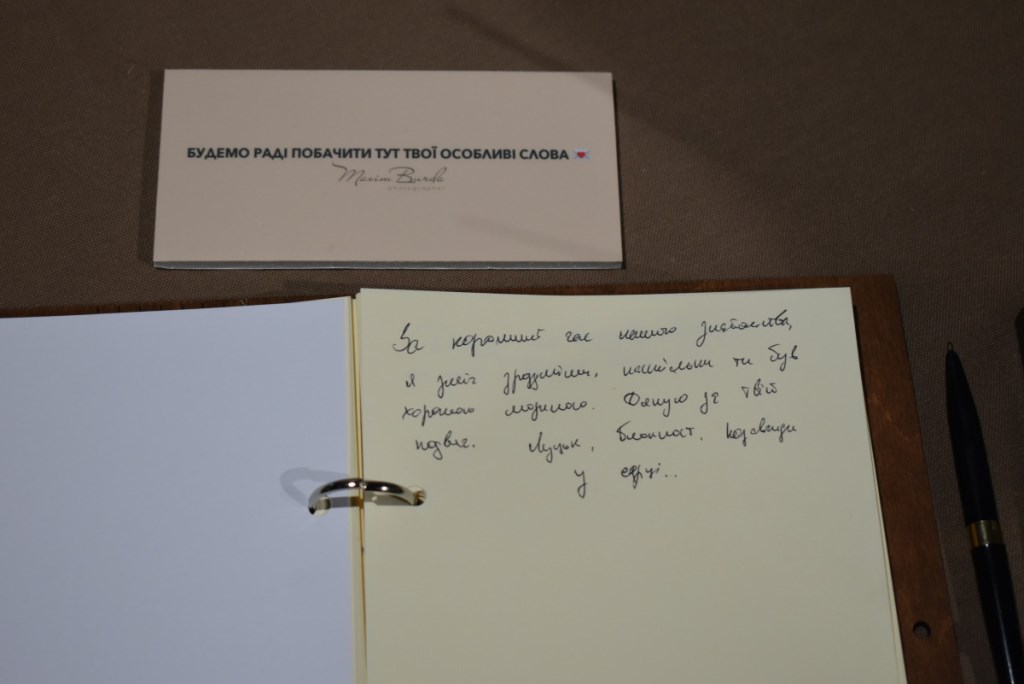 БУДЕМО РАДІ ПОБАЧИТИ ТУТ ТВОЇ ОСОБЛИВІ СЛОВА 💌
Maxim Burda
photographer
За короткий час нашого знайомства,
я зміг зрозуміти, наскільки ти був
хорошою людиною. Дякую за твій
подвиг. Луцьк, блокпост, назавжди
у серці..